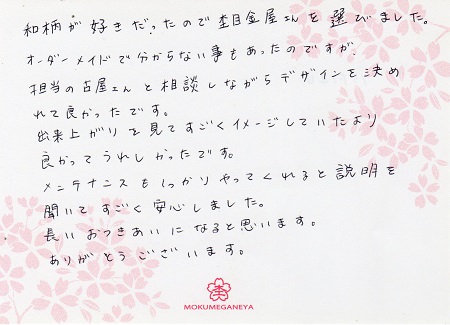 和柄が好きだったので杢目金屋さんを選びました。
オーダーメイドで分からない事もあったのですが、
担当の古屋さんと相談しながらデザインを決め
れて良かったです。
出来上がりを見てすごくイメージしていたより
良かってうれしかったです。
メンテナンスもしっかりやってくれると説明を
聞いてすごく安心しました。
長いおつきあいになると思います。
ありがとうございます。
MOKUMEGANEYA